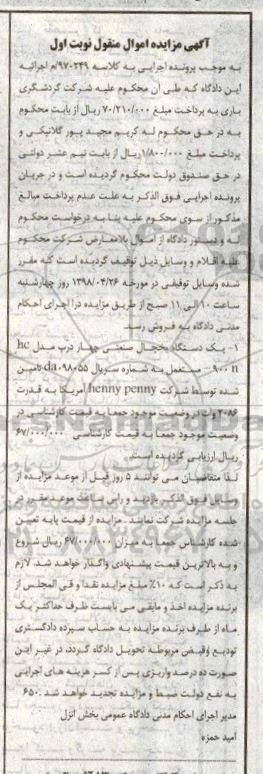 آگهی مزایده اموال منقول نوبت اول
به موجب پرونده اجرایی به کلاسه ۹۷۰۲۴۹/م اجرائیه
این دادگاه که طی آن محکوم علیه شرکت گردشگری
یاری به پرداخت مبلغ ۷۰/۲۱۰/۰۰۰ ریال از بابت محکوم
به در حق محکوم له کریم مجید پور گلانیکی و
پرداخت مبلغ ۱/۸۰۰/۰۰۰ ریال از بابت نیم عشر دولتی
در حق صندوق دولت محکوم گردیده است و در جریان
پرونده اجرایی فوق الذکر به علت عدم پرداخت مبالغ
مذکور از سوی محکوم علیه بنا به درخواست محکوم
له و دستور دادگاه از اموال بلامعارض شرکت محکوم
علیه اقلام و وسایل ذیل توقیف گردیده است که مقرر
شده وسایل توقیفی در مورخه ۱۳۹۸/۰۴/۲۶ روز چهارشنبه
ساعت ۱۰ الی ۱۱ صبح از طریق مزایده در اجرای احکام
مدنی دادگاه به فروش رسد
۱- یک دستگاه یخچال صنعتی چهار درب مدل hc
۹۰۰ n- مستعمل به شماره سریال da۰۹۸۰۵۵ تامین
شده توسط شرکت henny penny آمریکا به قدرت
۲۰۸۶ وات در وضعیت موجود جمعا به قیمت کارشناسی در
وضعیت موجود جمعا به قیمت کارشناسی ۶۷/۰۰۰/۰۰۰
ریال ارزیابی گردیده است.
لذا متقاضیان می توانند ۵ روز قبل از موعد مزایده از
اموال فوق الذکر بازدید و راس ساعت موعد مقرر در
جلسه مزایده شرکت نمایند. مزایده از قیمت پایه تعیین
شده کارشناس جمعا به میزان ۶۷/۰۰۰/۰۰۰ ریال شروع
و به بالاترین قیمت پیشنهادی واگذار خواهد شد. لازم
به ذکر است که ۱۰٪ مبلغ مزایده نقدا و فی المجلس از
برنده مزایده اخذ و مابقی می بایست ظرف حداکثر یک
ماه از طرف برنده مزایده به حساب سپرده دادگستری
تودیع و قبض مربوطه تحویل دادگاه گردد، در غیر این
صورت ده درصد واریزی پس از کسر هزینه های اجرایی
به نفع دولت ضبط و مزایده تجدید خواهد شد. ۶۵۰
مدیر اجرای احکام مدنی دادگاه عمومی بخش انزل
امید حمزه